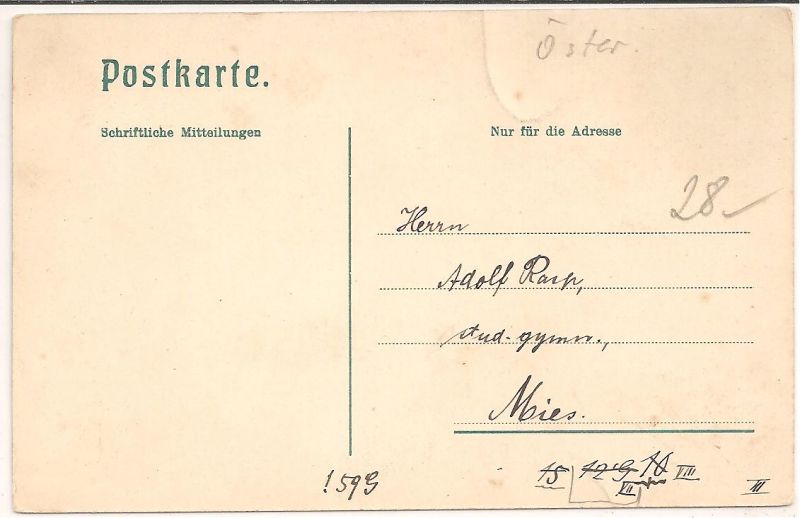 Öster.
Postkarte.
Schriftliche Mitteilungen
Nur für die Adresse
28
Herrn
Adolf Rasp,
stud. gymn.,
Mies.
! 59 G
15 12 G 10 VIII
VII
III